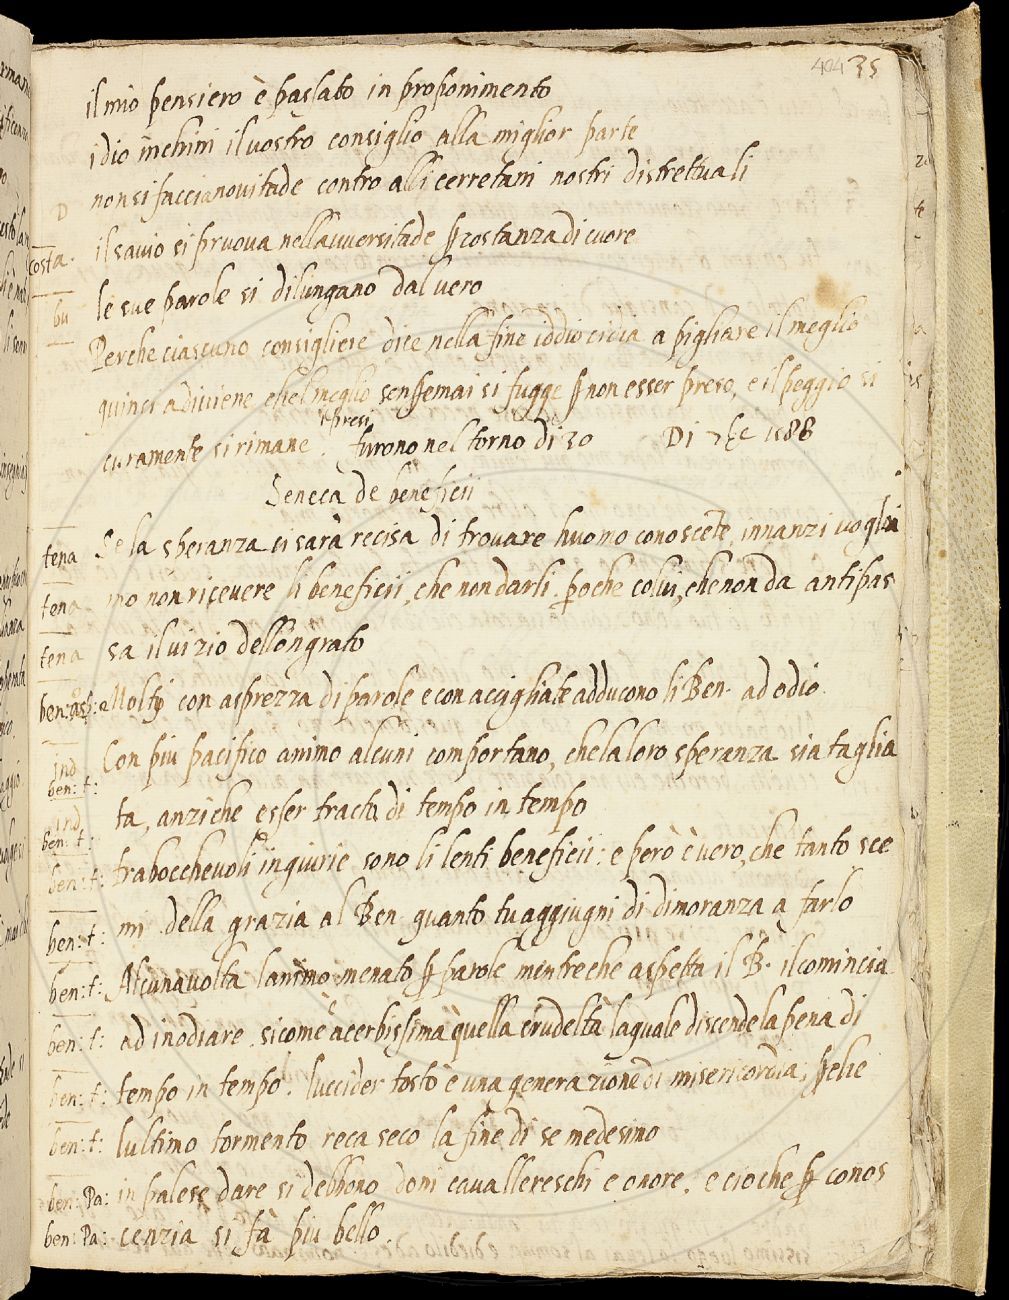 404 35
il mio pensiero è passato in proponimento
idio inchini il vostro consiglio alla miglior parte
non si faccia novitade contro alli cerretani nostri distrettuali
D
il savio si pruova nell avversitade ꝑ costanza di cuore
costa.
le sue parole si dilungano dal vero
bu
Perche ciascuno consigliere dice nella fine iddio ci dia a pigliare il meglio
quinci adiviene chel meglio sempre mai si fugge ꝑ non esser preso, e il peggio si
curamente si rimane. presi furono nel torno di 20 Di 1588
Seneca de beneficii
tena Se la speranza ci sarà recisa di trovare huomo conoscēte, innanzi voglia
tena mo non ricevere li beneficii, che non darli. ꝑoche colui, che non da antipas
tena sa il vizio dellongrato
ben: asp: Molti con asprezza di parole e con accigliate adducono li Ben. ad odio.
ind ben: t: Con piu pacifico animo alcuni comportano, che la loro speranza sia taglia
ind ben: t: ta, anziche esser tracti di tempo in tempo
ben: t: trabocchevoli ingiurie sono li lenti beneficii: e però è vero, che tanto sce
ben: t: mi della grazia al Ben quanto tu aggiugni di dimoranza a farlo
ben: t: Alcuna volta lanimo menato ꝑ parole mentreche aspetta il B. il comincia
ben: t: ad inodiare. sicome acerbissima è quella crudeltà laquale discende la pena di
ben: t: tempo in tempo. luccider tosto è una generazione di misericordia, ꝑche
ben: t: lultimo tormento reca seco la fine di se medesimo
ben: Pa: in palese dare si debbono doni cavallereschi e onore. e cioche ꝑ conos
ben: Pa: cenzia si fà piu bello.